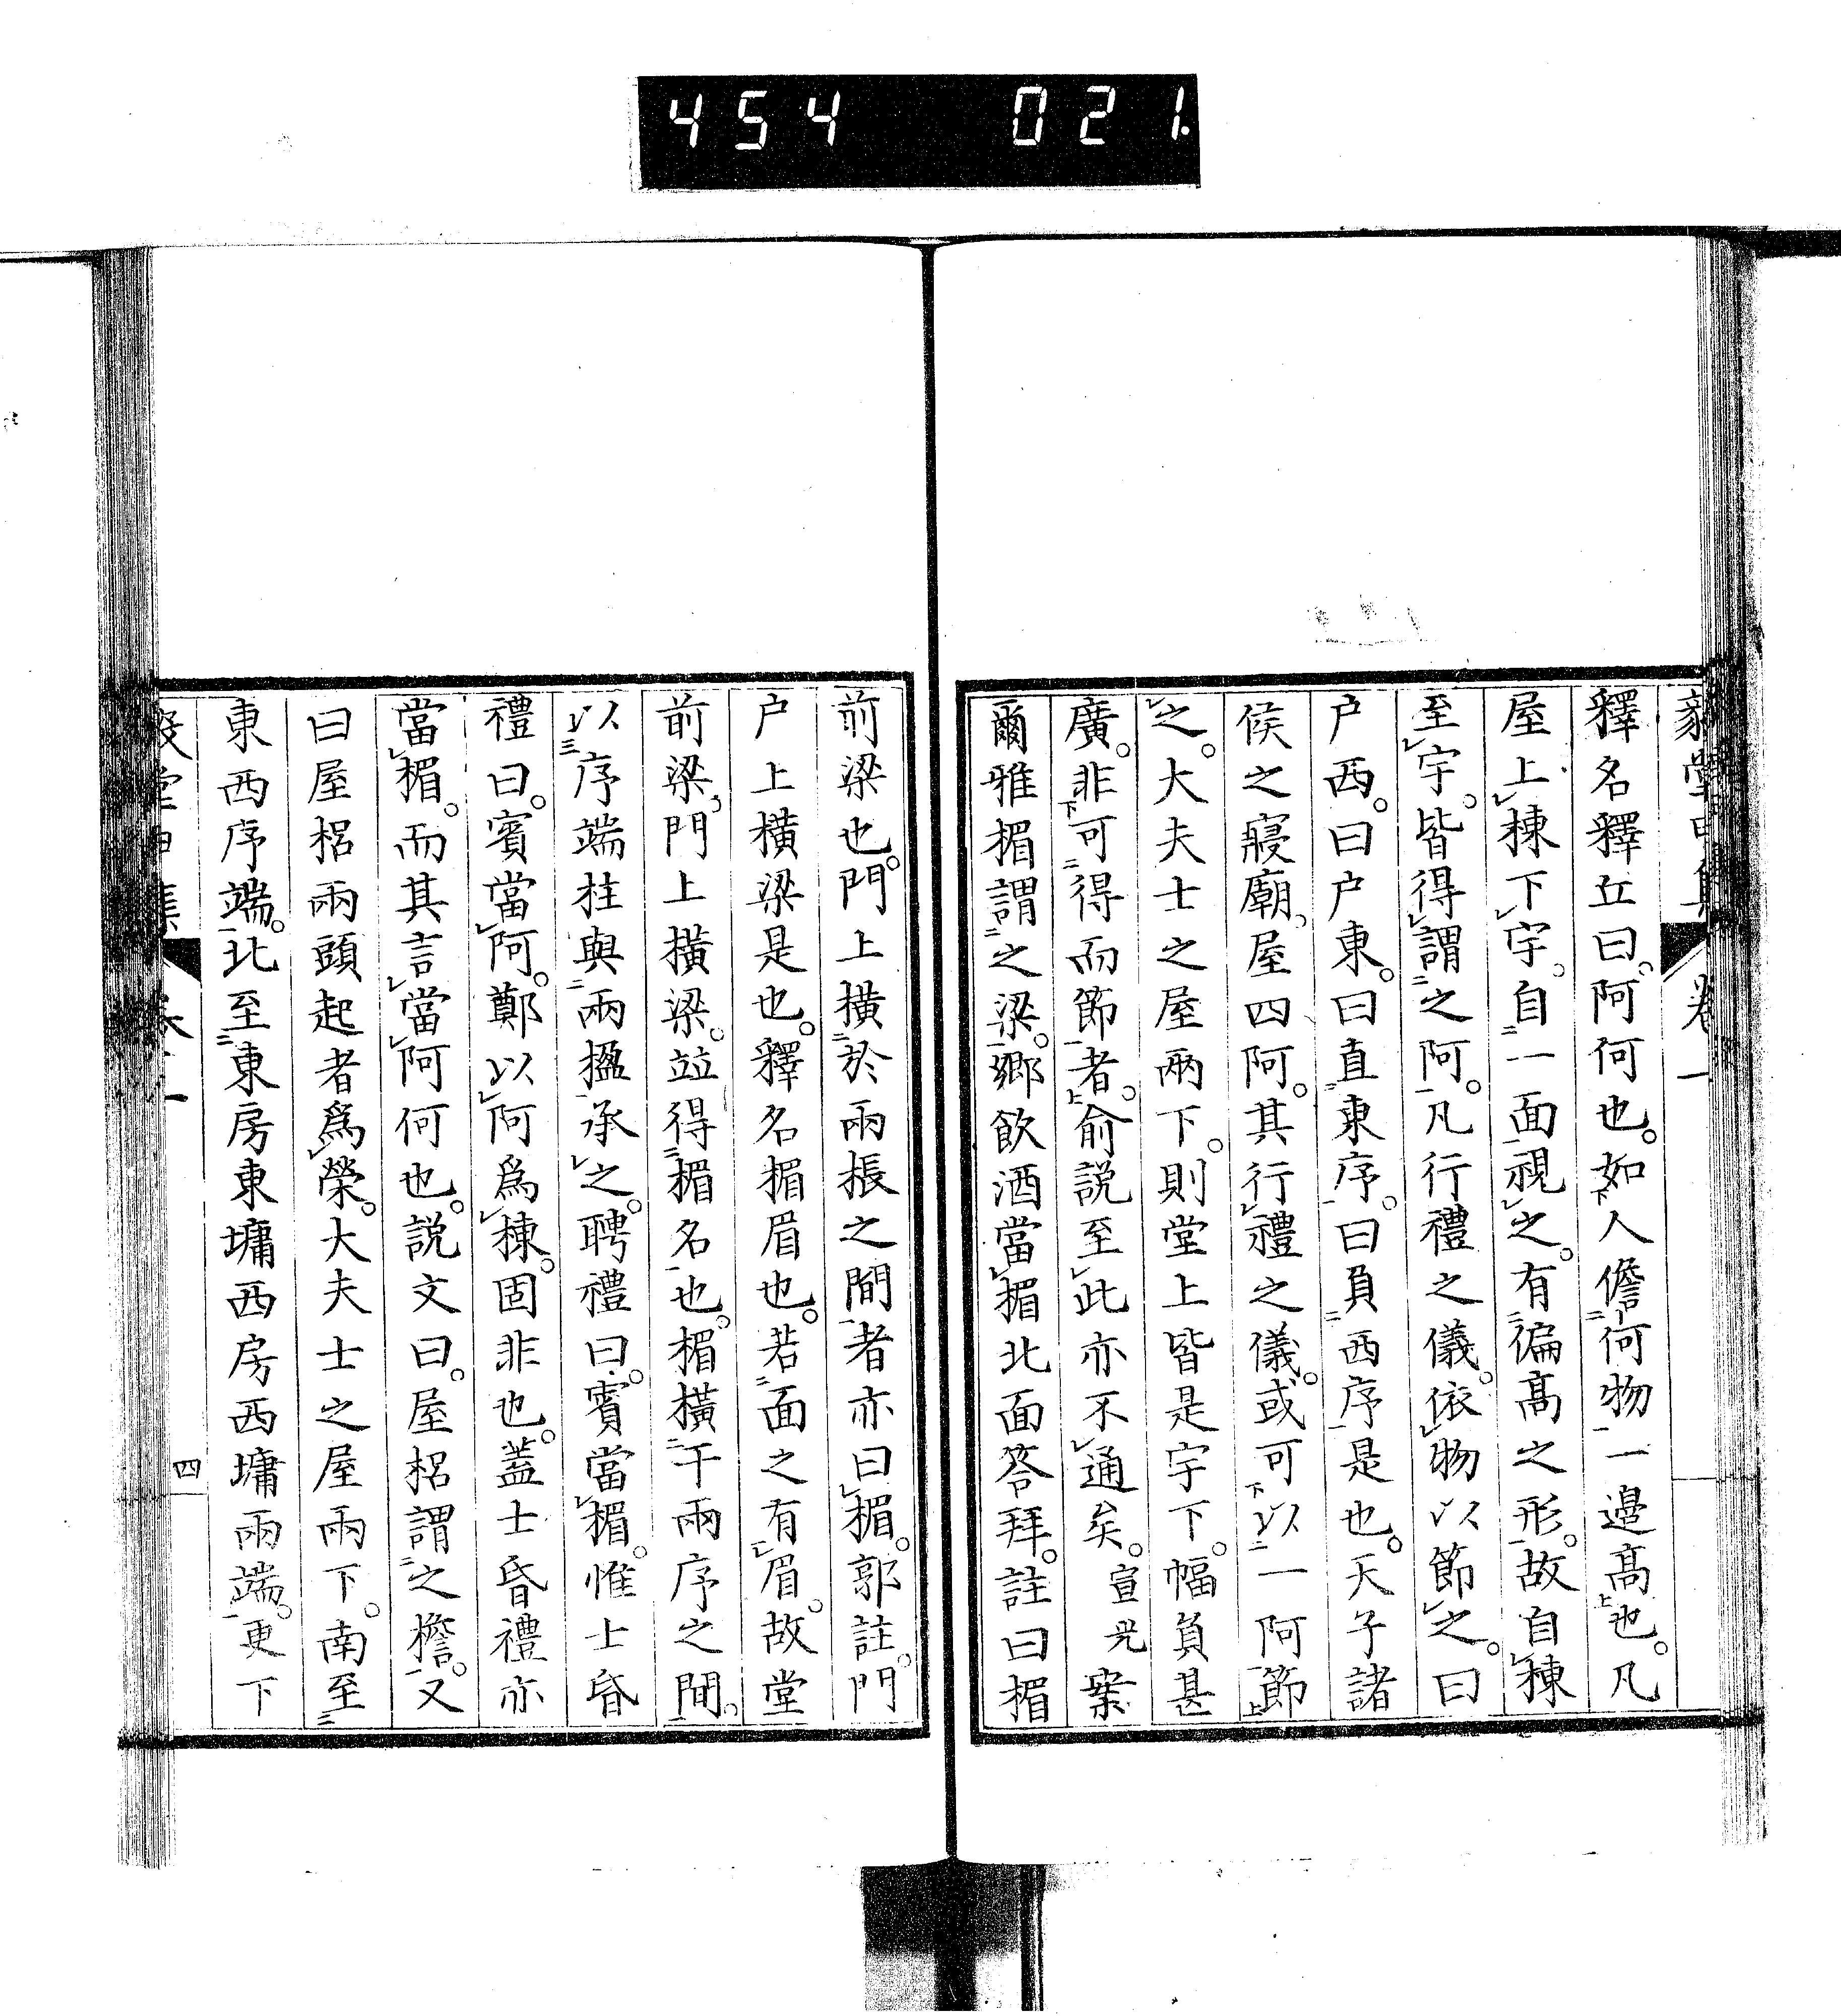 454 021.
釋名釋丘曰。阿何也。如人儋何物一邊高也。凡
屋上棟下宇。自一面視之。有偏高之形。故自棟
至宇。皆得謂之阿。凡行禮之儀。依物以節之。曰
户西。曰户東。曰直東序。曰負西序是也。天子諸
侯之寢廟。屋四阿。其行禮之儀。或可以一阿節
之。大夫士之屋兩下。則堂上皆是宇下。幅負甚
廣。非可得而節者。俞説至此亦不通矣。宣光案
爾雅楣謂之梁。鄉飲酒當楣北面答拜。註曰楣
前梁也。門上橫於兩棖之間者亦曰楣。郭註。門
户上橫梁是也。釋名楣眉也。若面之有眉。故堂
前梁。門上橫梁。竝得楣名也。楣橫于兩序之間。
以序端柱與兩楹承之。聘禮曰。賓當楣。惟士昏
禮曰。賓當阿。鄭以阿爲棟。固非也。蓋士昏禮亦
當楣。而其言當阿何也。説文曰。屋梠謂之檐。又
曰屋梠兩頭起者爲榮。大夫士之屋兩下。南至
東西序端。北至東房東墉西房西墉兩端。更下
四